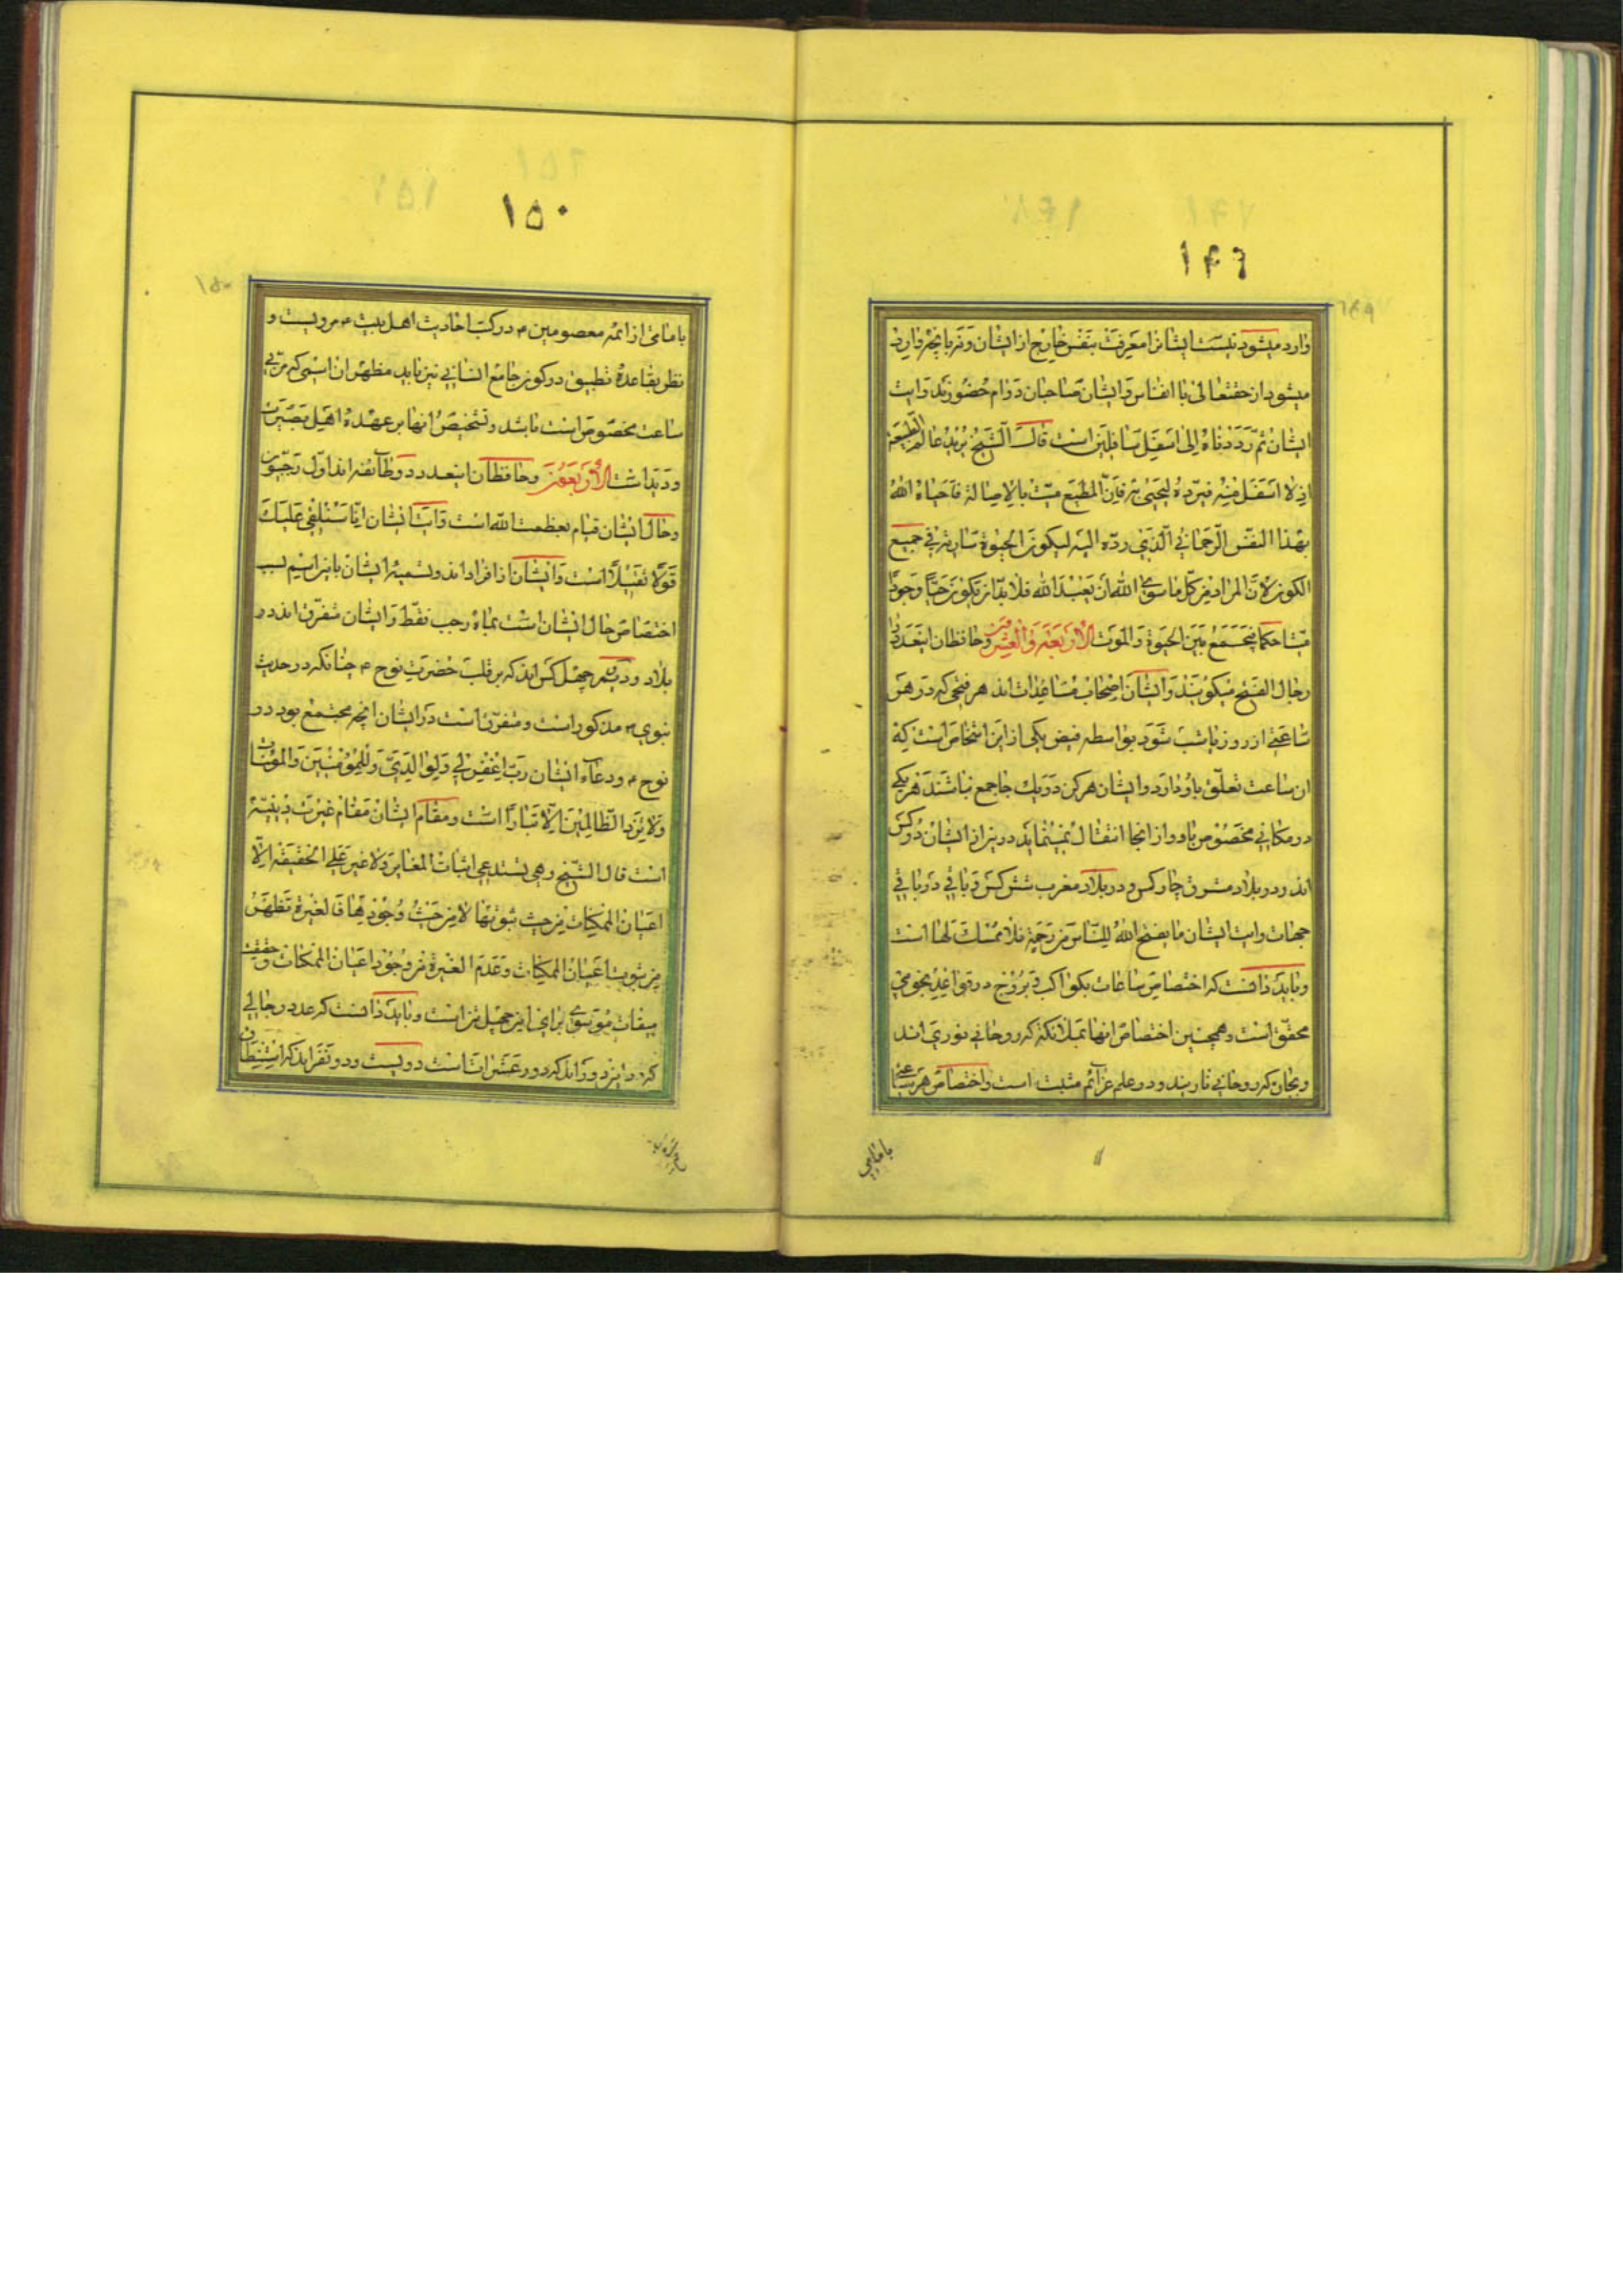 ۱۴۹
وارد میشود نیست ایشانرا معرفت بنفس خارج از ایشان و نه بانچه وارد
میشود از حقتعالی با انفاس و ایشان صاحبان دوام حضورند و ایت
ایشان ثمّ رَدَدْناهُ اِلی اَسْفَلِ سٰافِلینَ است قال الشیخ یُریدُ عالم الطبیعة
اذ لا اسفل منه فیردّه لیحیی به فانّ الطبع میّت بالاصالة فاحیاه الله
بهذا النفس الرّحمانی الّذی ردّه الیه لیکون الحیوة ساریة فی جمیع
الکون لانّ المراد من کلّ ما سوی الله ان یعبد الله فلا بدّ ان یکون حیّاً وجوداً
میّتا حکما فیجمع بین الحیوة و الموت الاربعة و العشرون و حافظان اینعدد را
رجال الفتح میگویند و ایشان اصحاب ساعات اند هر فتحی که در هر
ساعتی از روز یا شب شود بواسطه فیض یکی از این اشخاص است که
ان ساعت تعلّق باو دارد و ایشان هرکز در یک جا جمع نباشند هر یکی
در مکانی مخصوص باو و از انجا انتقال نمینماید در یمن از ایشان دو کس
اند و در بلاد مشرق چار کس و در بلاد مغرب شش کس و باقی در باقی
جهات و ایت ایشان ما یفتح اللهُ للنّاس من رحمة فلا ممسک لها است
و باید دانست که اختصاص ساعات بکواکب و بروج در قواعد نجومی
محقّق است و همچنین اختصاص انها بملائکه که روحانی نوری اند
و بجان که روحانی نارینند و در علم عزائم مثبت است و اختصاص هر ساعتی
بامامی
۱۵۰
بامامی از ائمه معصومین ۴ در کتب احادیث اهل بیت ۴ مرویست و
نظر بقاعدهٔ تطبیق در کون جامع انسانی نیز باید مظهر ان اسمی که مربّی
ساعت مخصوص است باشد و تشخیص انها بر عهدهٔ اهل بصیرت
و دیدانست الاربعون و حافظان اینعدد دو طائفه اند اوّل رجبیون
و حال ایشان قیام بعظمت الله است و ایت ایشان انّا سَنُلقی عَلَیکَ
قولاً ثقیلاً است و ایشان از افراد اند و تسمیه ایشان باین اسم بسبب
اختصاص حال ایشان است بماه رجب فقط و ایشان متفرّق اند در
بلاد و دویم چهل کس اند که بر قلب حضرت نوح ۴ چنانکه در حدیث
نبوی ۳ مذکور است و متفرق است در ایشان انچه مجتمع بود در
نوح ۴ و دعاء ایشان ربّ اغفر لی و لوالدیّ و للمؤمنین و المؤمنات
و لا یزد الظالمین الّا تبارا است و مقام ایشان مقام غیرت دینیّه
است قال الشیخ و هی یستدعی اثبات المغایر و لا غیر علی الحقیقة الّا
اعیان الممکنات من حیث ثبوتها لا من حیث وجودها فالغیرة تظهر
من ثبوت اعیان الممکنات و عدم الغیرة من وجود اعیان الممکنات و حقیقت
میقات موسی برای این چهل تن است و باید دانست که عدد رجالی
که در این دوراند که دور عشرات است دویست و دو نفراند که استنباطان